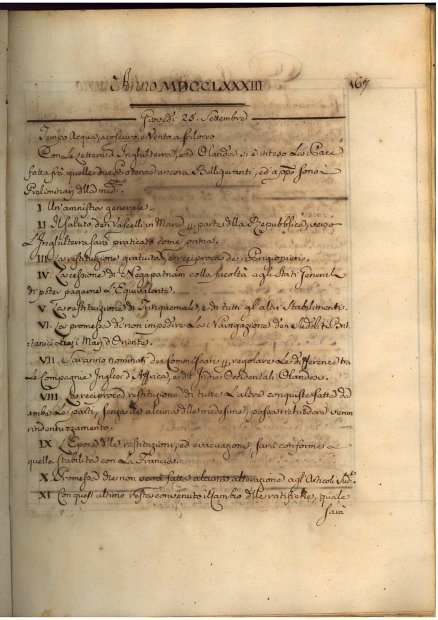 Anno MDCCLXXXIII
167
Giovedì 25. Settembre
Tempo Acqua, oscuro, e Vento a Scilocco
Con le Lettere d'Inghilterra, ed Olanda si è inteso la Pace
fatta frà quelle due Potenze ancora Belligeranti, ed appo sono
Preliminari della med.ma
I. Un'amnistia generale.
II. Il Saluto dei Vascelli in Mare p. parte della Repubblica, verso
l'Inghilterra sarà praticato come prima.
III. La restituzione gratuita, e reciproca dei Prigionieri.
IV. La cessione di Negapatnam colla facoltà agli Stati Generali
di poter pagarne l'Equivalente.
V. La restituzione di Trinquemale, e di tutti gl'altri Stabilimenti.
VI. La promessa di non impedire la Navigazione dei Sudditi Bri-
tanici negl'i Mari d'Oriente.
VII. Saranno nominati dei Comissarj p. regolare le differenze trà
le Compagnie Inglesi d'Affrica, e dell'Indie Occidentali Olandesi.
VIII. La reciproca restituzione di tutte l'altre conquiste fatte da
ambe le parti, senza che alcuna delle medesime, possa richiedere verun
rindenizzamento.
IX. L'Epoca delle restituzioni, ed evacuazioni, sarà conforme a
quella stabilita con la Francia.
X. Promessa che non verrà fatta alcuna alterazione agl'Articoli Sud.ti
XI. Con quest'ultimo resta convenuto il cambio delle ratifiche, quale
sarà